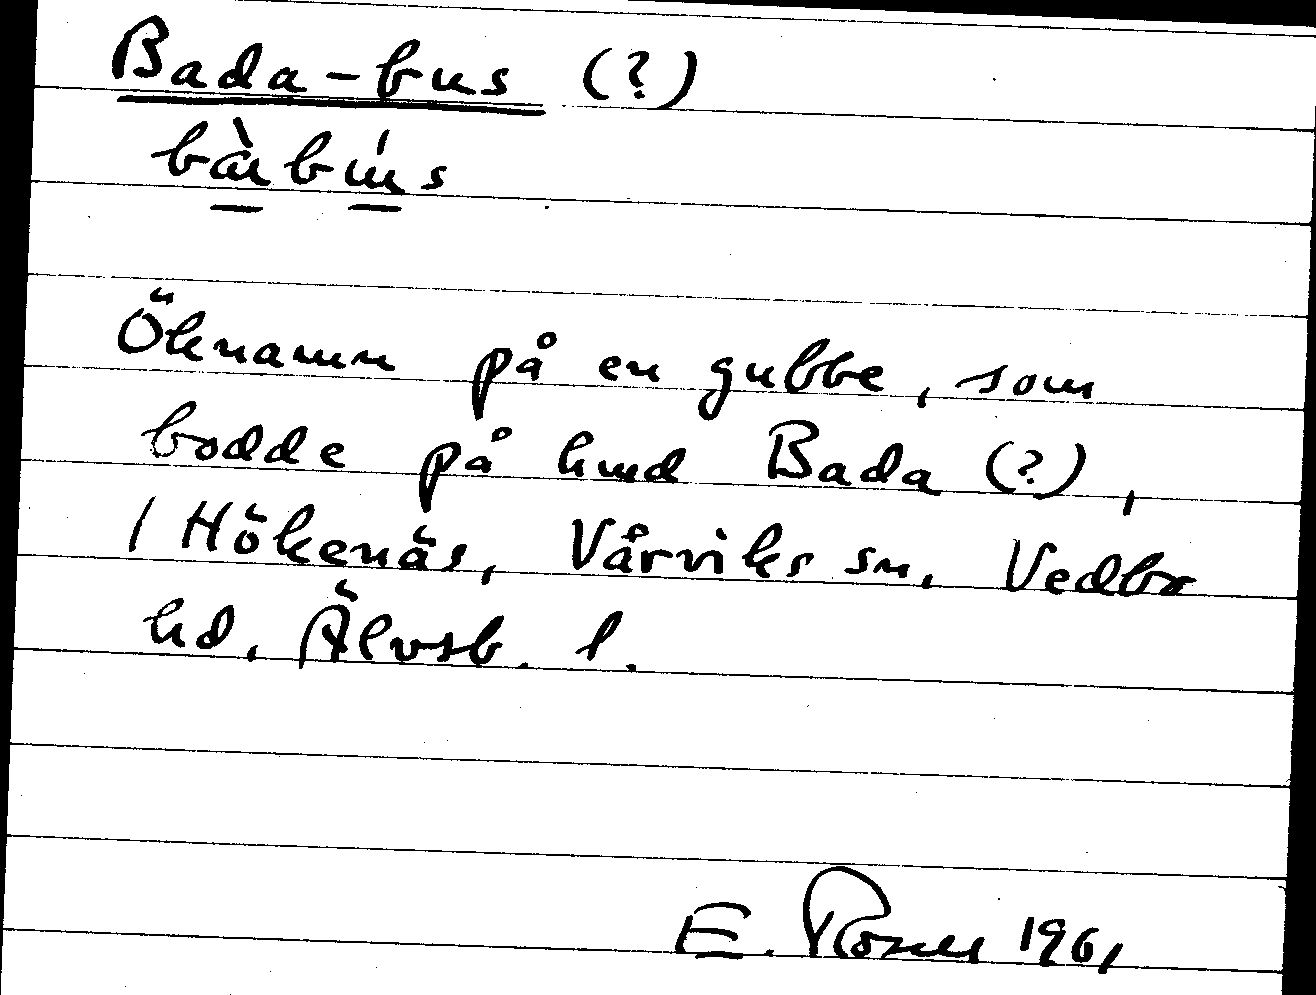 Bada-bus (?)
bà̱bú̱s
Öknamn på en gubbe, som
bodde på hmd Bada (?),
i Hökenäs, Vårviks sn, Vedbo
hd. Älvsb. l.
E. Rosell 1961